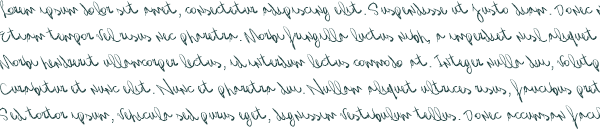 Lorem ipsum dolor sit amet, consectetur adipiscing elit. Suspendisse et justo diam. Donec
Etiam tempor vel risus nec pharetra. Morbi fringilla lectus nibh, a imperdiet nisl aliquet
Morbi hendrerit ullamcorper lectus, id interdum lectus commodo at. Integer nulla dui, volutp
Curabitur et nunc elit. Nunc et pharetra dui. Nullam aliquet ultrices risus, faucibus
Sed tortor ipsum, vehicula sed purus eget, dignissim vestibulum tellus. Donec accumsan